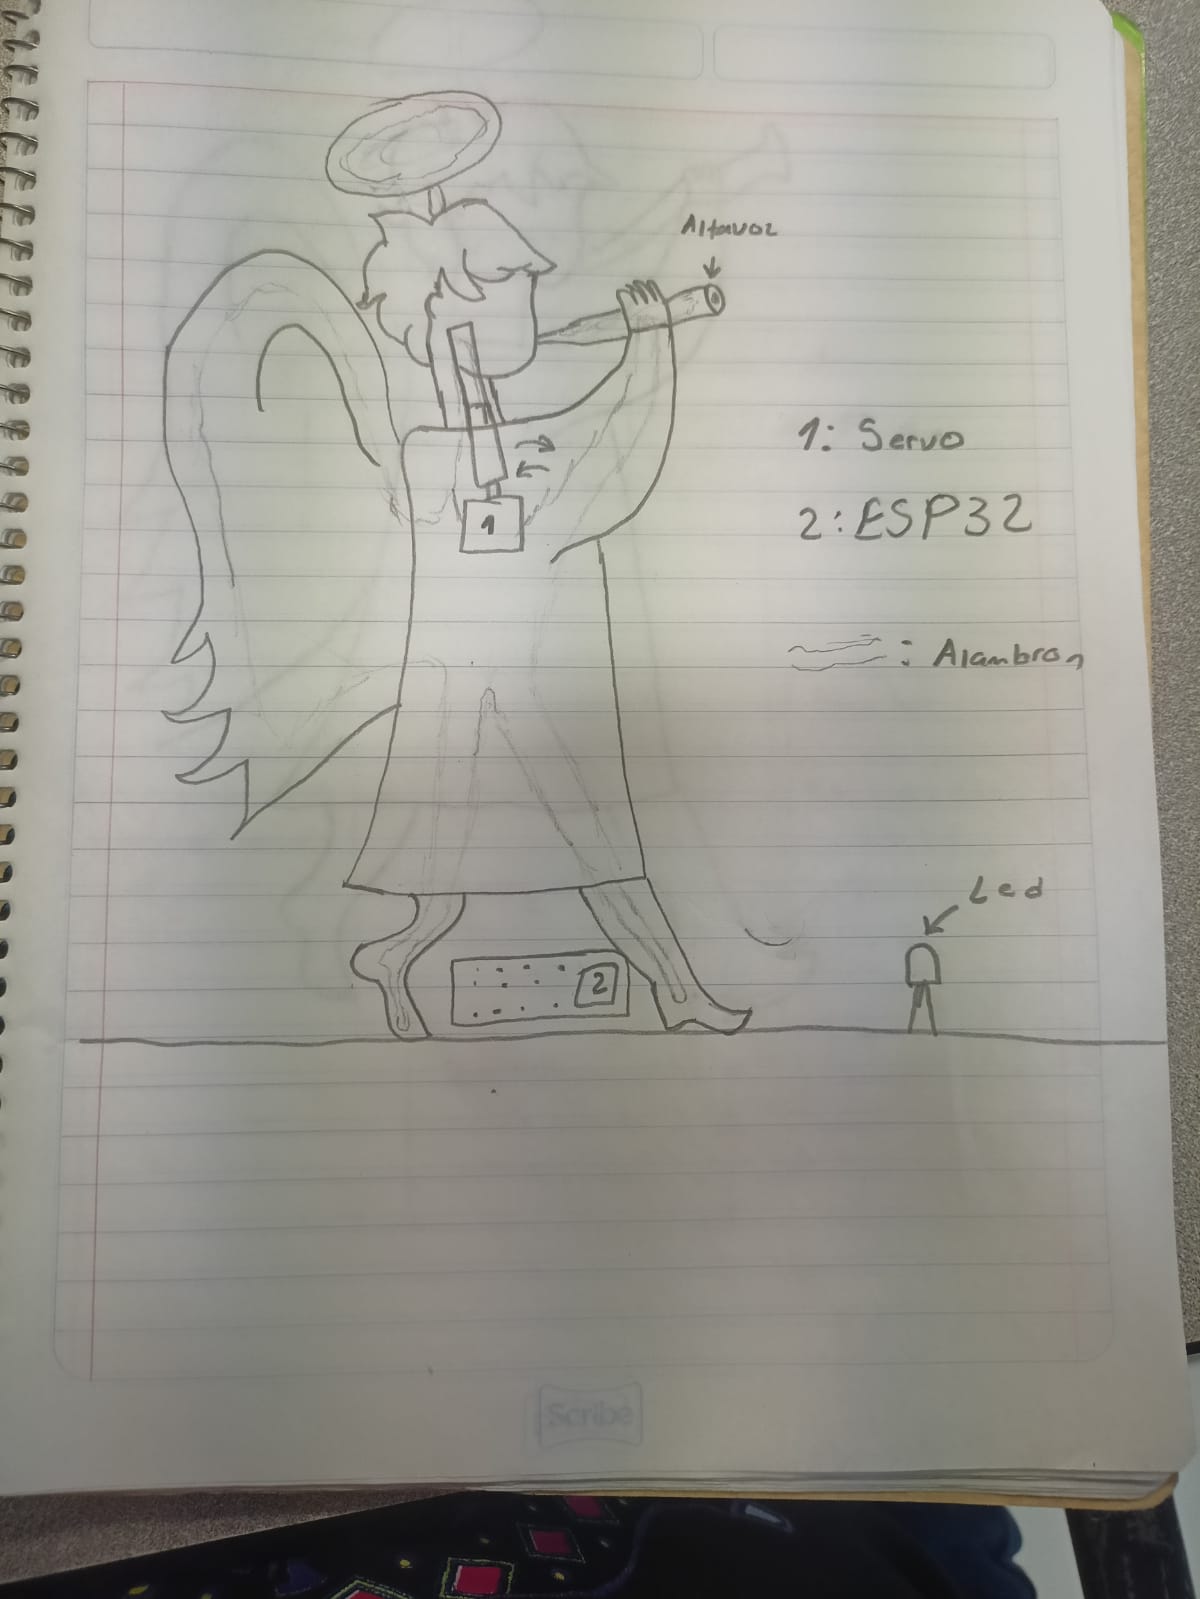 Altavoz
1
1: Servo
2: ESP32
: Alambron
Led
2
Scribe